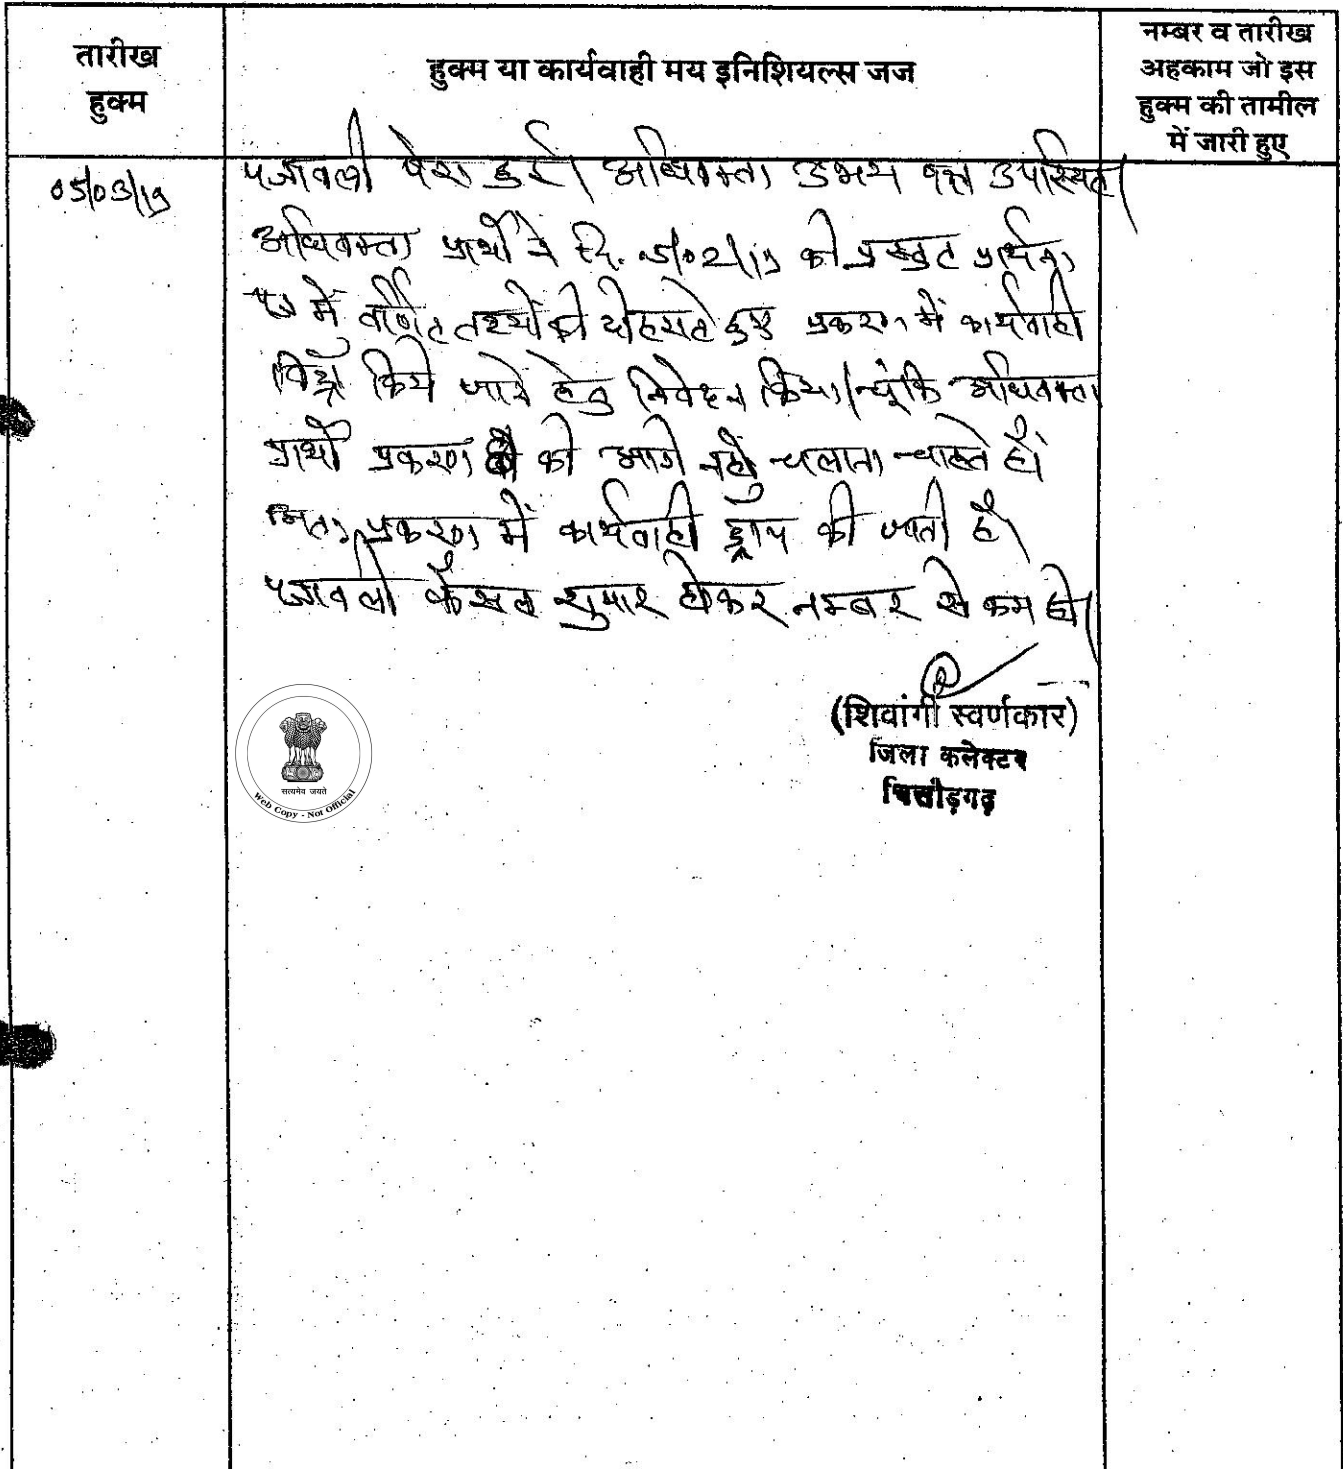 तारीख
हुक्म
हुक्म या कार्यवाही मय इनिशियल्स जज
नम्बर व तारीख
अहकाम जो इस
हुक्म की तामील
में जारी हुए
05/03/19
पत्रावली पेश हुई। अधिवक्ता उभय पक्ष उपस्थित।
अधिवक्ता प्रार्थी ने दि. 5/02/19 को प्रस्तुत प्रार्थना
पत्र में वर्णित तथ्यों को दोहराते हुए प्रकरण में कार्यवाही
विड्रॉ किये जाने हेतु निवेदन किया। चूंकि अधिवक्ता
प्रार्थी प्रकरण को आगे नहीं चलाना चाहते हैं
अतः प्रकरण में कार्यवाही ड्रॉप की जाती है।
पत्रावली फैसल शुमार होकर नम्बर से कम हो।
(शिवांगी स्वर्णकार)
जिला कलेक्टर
चित्तौड़गढ़
सत्यमेव जयते
Web Copy - Not Official